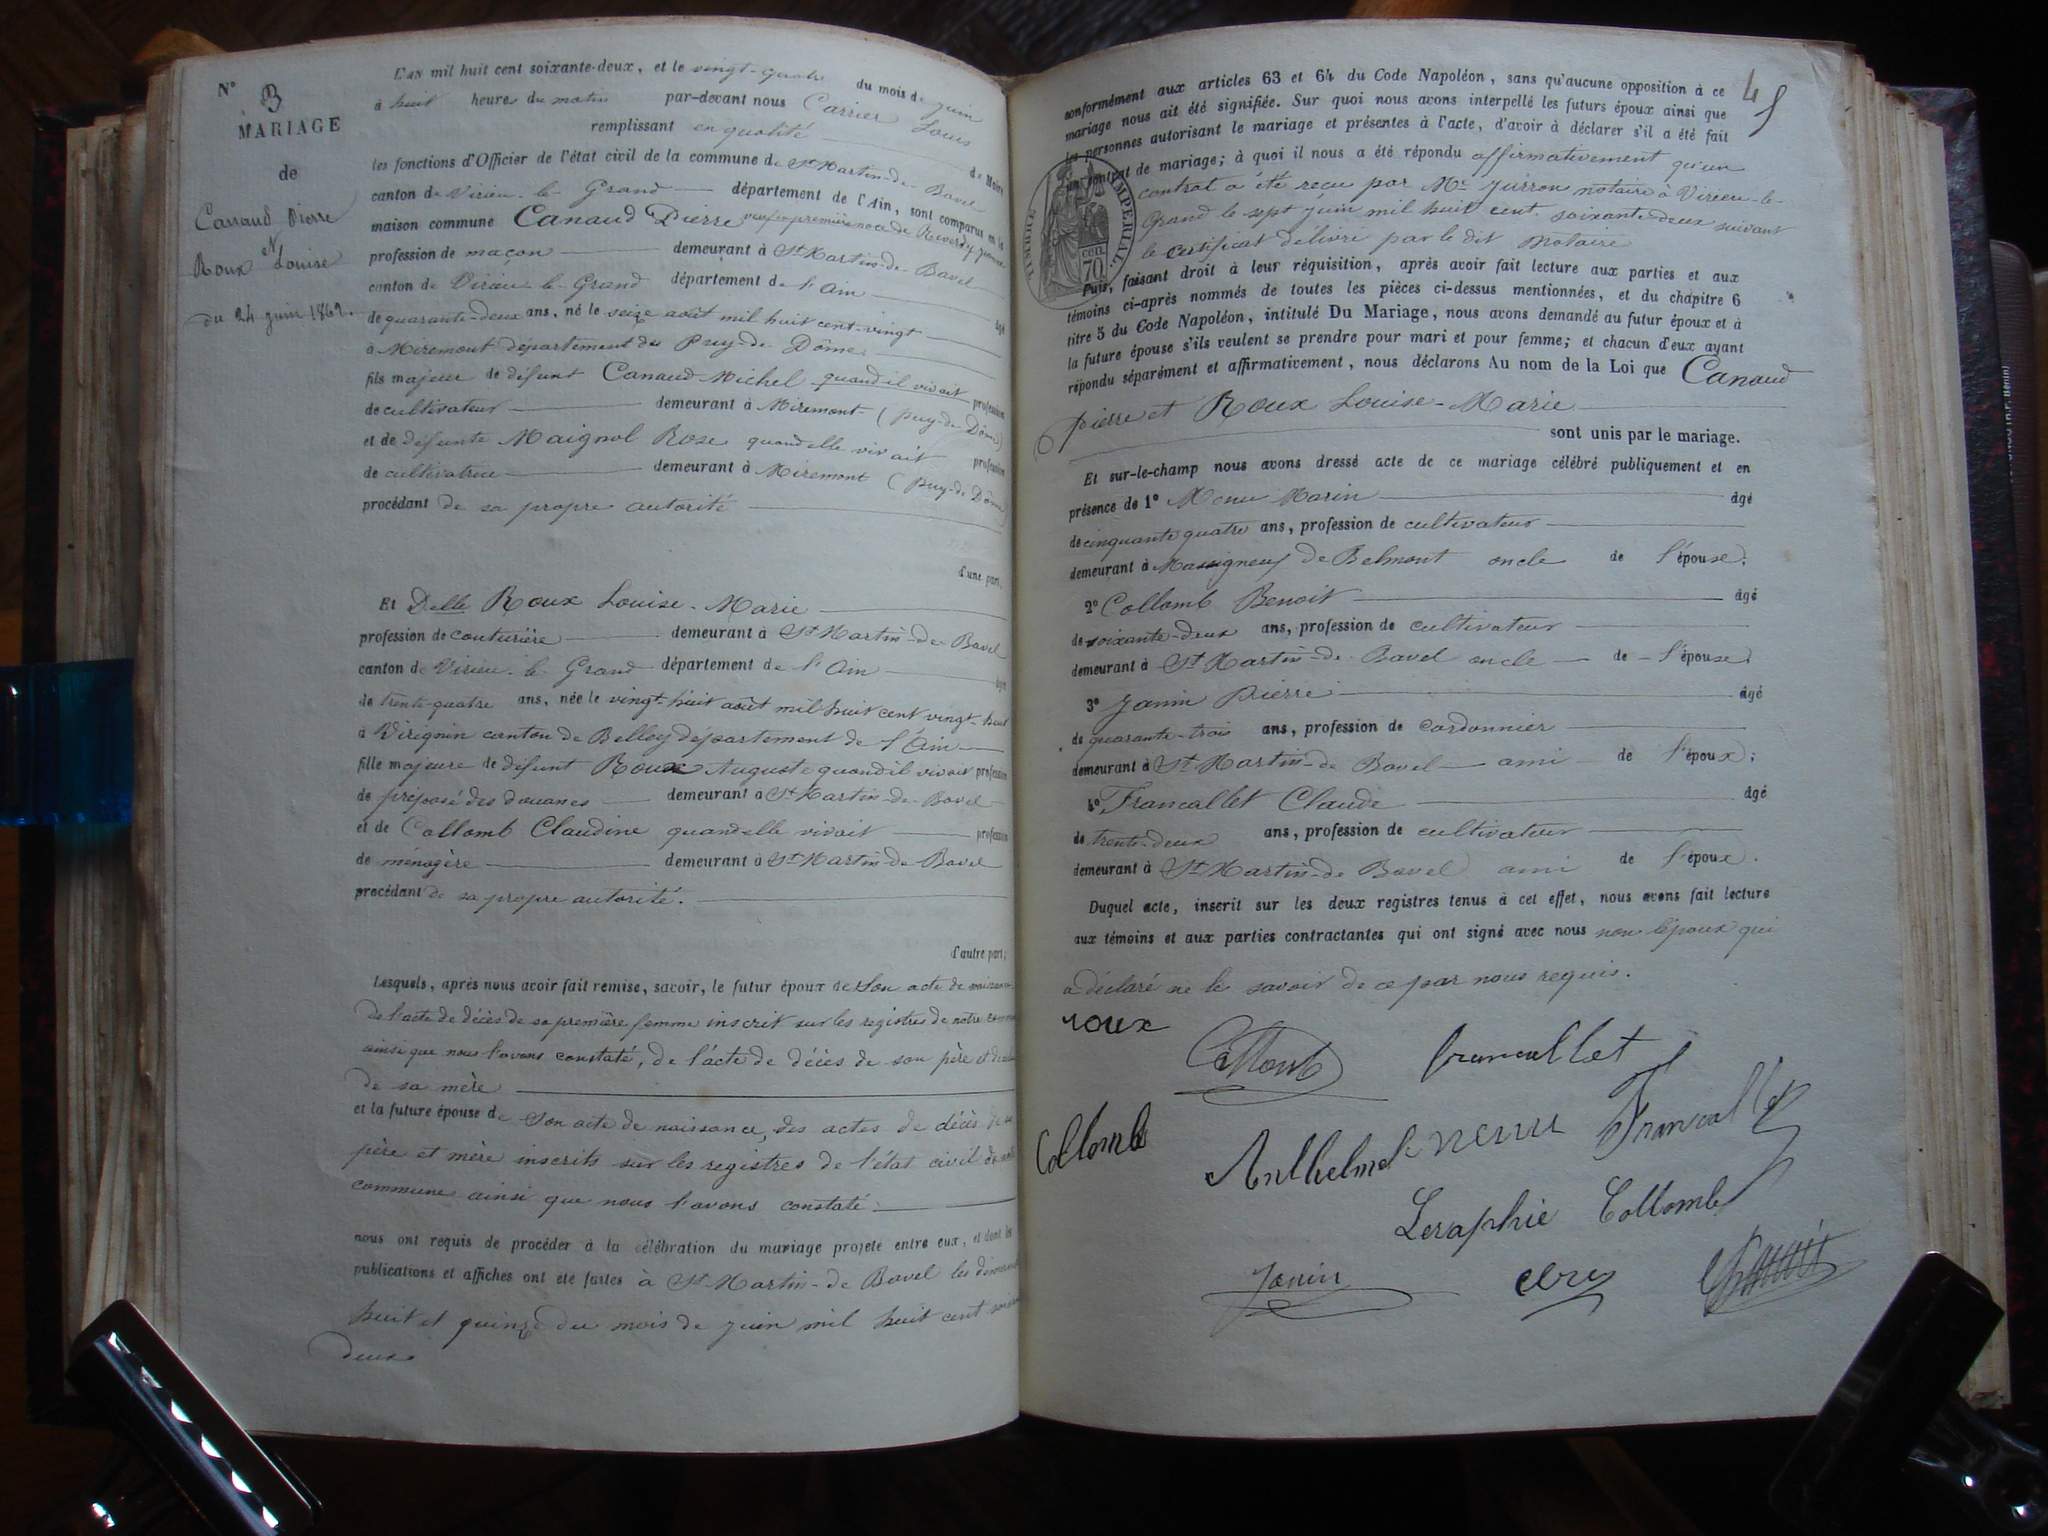 N° 3
MARIAGE
de
Canaud Pierre
et
Roux Louise
du 24 juin 1862.
L'AN mil huit cent soixante-deux, et le vingt-quatre du mois de juin
à huit heures du matin par-devant nous Carrier Louis
remplissant en qualité de Maire
les fonctions d'Officier de l'état civil de la commune de St Martin-de-Bavel
canton de Virieu-le-Grand département de l'Ain, sont comparus en la
maison commune Canaud Pierre veuf en première noce de Reverdy
profession de maçon demeurant à St Martin-de-Bavel
canton de Virieu-le-Grand département de l'Ain âgé
de quarante-deux ans, né le seize août mil huit cent-vingt
à Miremont département du Puy-de-Dôme
fils majeur de défunt Canaud Michel quand il vivait profession
de cultivateur demeurant à Miremont (Puy-de-Dôme)
et de défunte Maignol Rose quand elle vivait profession
de cultivatrice demeurant à Miremont (Puy-de-Dôme)
procédant de sa propre autorité
d'une part,
Et Delle Roux Louise-Marie
profession de couturière demeurant à St Martin-de-Bavel
canton de Virieu-le-Grand département de l'Ain âgée
de trente-quatre ans, née le vingt-huit août mil huit cent vingt-huit
à Virignin canton de Belley département de l'Ain
fille majeure de défunt Roux Auguste quand il vivait profession
de préposé des douanes demeurant à St Martin-de-Bavel
et de Collomb Claudine quand elle vivait profession
de ménagère demeurant à St Martin-de-Bavel
procédant de sa propre autorité.
d'autre part;
Lesquels, après nous avoir fait remise, savoir, le futur époux de son acte de naissance
de l'acte de décès de sa première femme inscrit sur les registres de notre commune
ainsi que nous l'avons constaté, de l'acte de décès de son père et de celui
de sa mère
et la future épouse de son acte de naissance, des actes de décès de ses
père et mère inscrits sur les registres de l'état civil de notre
commune ainsi que nous l'avons constaté.
nous ont requis de procéder à la célébration du mariage projeté entre eux, et dont les
publications et affiches ont été faites à St Martin-de-Bavel les dimanches
huit et quinze du mois de juin mil huit cent soixante
deux
45
conformément aux articles 63 et 64 du Code Napoléon, sans qu'aucune opposition à ce
mariage nous ait été signifiée. Sur quoi nous avons interpellé les futurs époux ainsi que
les personnes autorisant le mariage et présentes à l'acte, d'avoir à déclarer s'il a été fait
un contrat de mariage; à quoi il nous a été répondu affirmativement qu'un
contrat a été reçu par Me Jurron notaire à Virieu-le-
Grand le sept juin mil huit cent soixante-deux suivant
le certificat délivré par le dit notaire
TIMBRE IMPERIAL
CEN.
70
Puis, faisant droit à leur réquisition, après avoir fait lecture aux parties et aux
témoins ci-après nommés de toutes les pièces ci-dessus mentionnées, et du chapitre 6
titre 5 du Code Napoléon, intitulé Du Mariage, nous avons demandé au futur époux et à
la future épouse s'ils veulent se prendre pour mari et pour femme; et chacun d'eux ayant
répondu séparément et affirmativement, nous déclarons Au nom de la Loi que Canaud
Pierre et Roux Louise-Marie
sont unis par le mariage.
Et sur-le-champ nous avons dressé acte de ce mariage célébré publiquement et en
présence de 1° Marin âgé
de cinquante quatre ans, profession de cultivateur
demeurant à Massigneux de Belmont oncle de l'épouse.
2° Collomb Benoit âgé
de soixante-deux ans, profession de cultivateur
demeurant à St Martin-de-Bavel oncle de l'épouse.
3° Janin Pierre âgé
de quarante-trois ans, profession de cordonnier
demeurant à St Martin-de-Bavel ami de l'époux;
4° Francallet Claude âgé
de trente-deux ans, profession de cultivateur
demeurant à St Martin-de-Bavel ami de l'époux.
Duquel acte, inscrit sur les deux registres tenus à cet effet, nous avons fait lecture
aux témoins et aux parties contractantes qui ont signé avec nous non l'époux qui
a déclaré ne le savoir de ce par nous requis.
roux
Collomb francallet
Collomb Anthelme Francallet
Seraphie Collomb
Janin